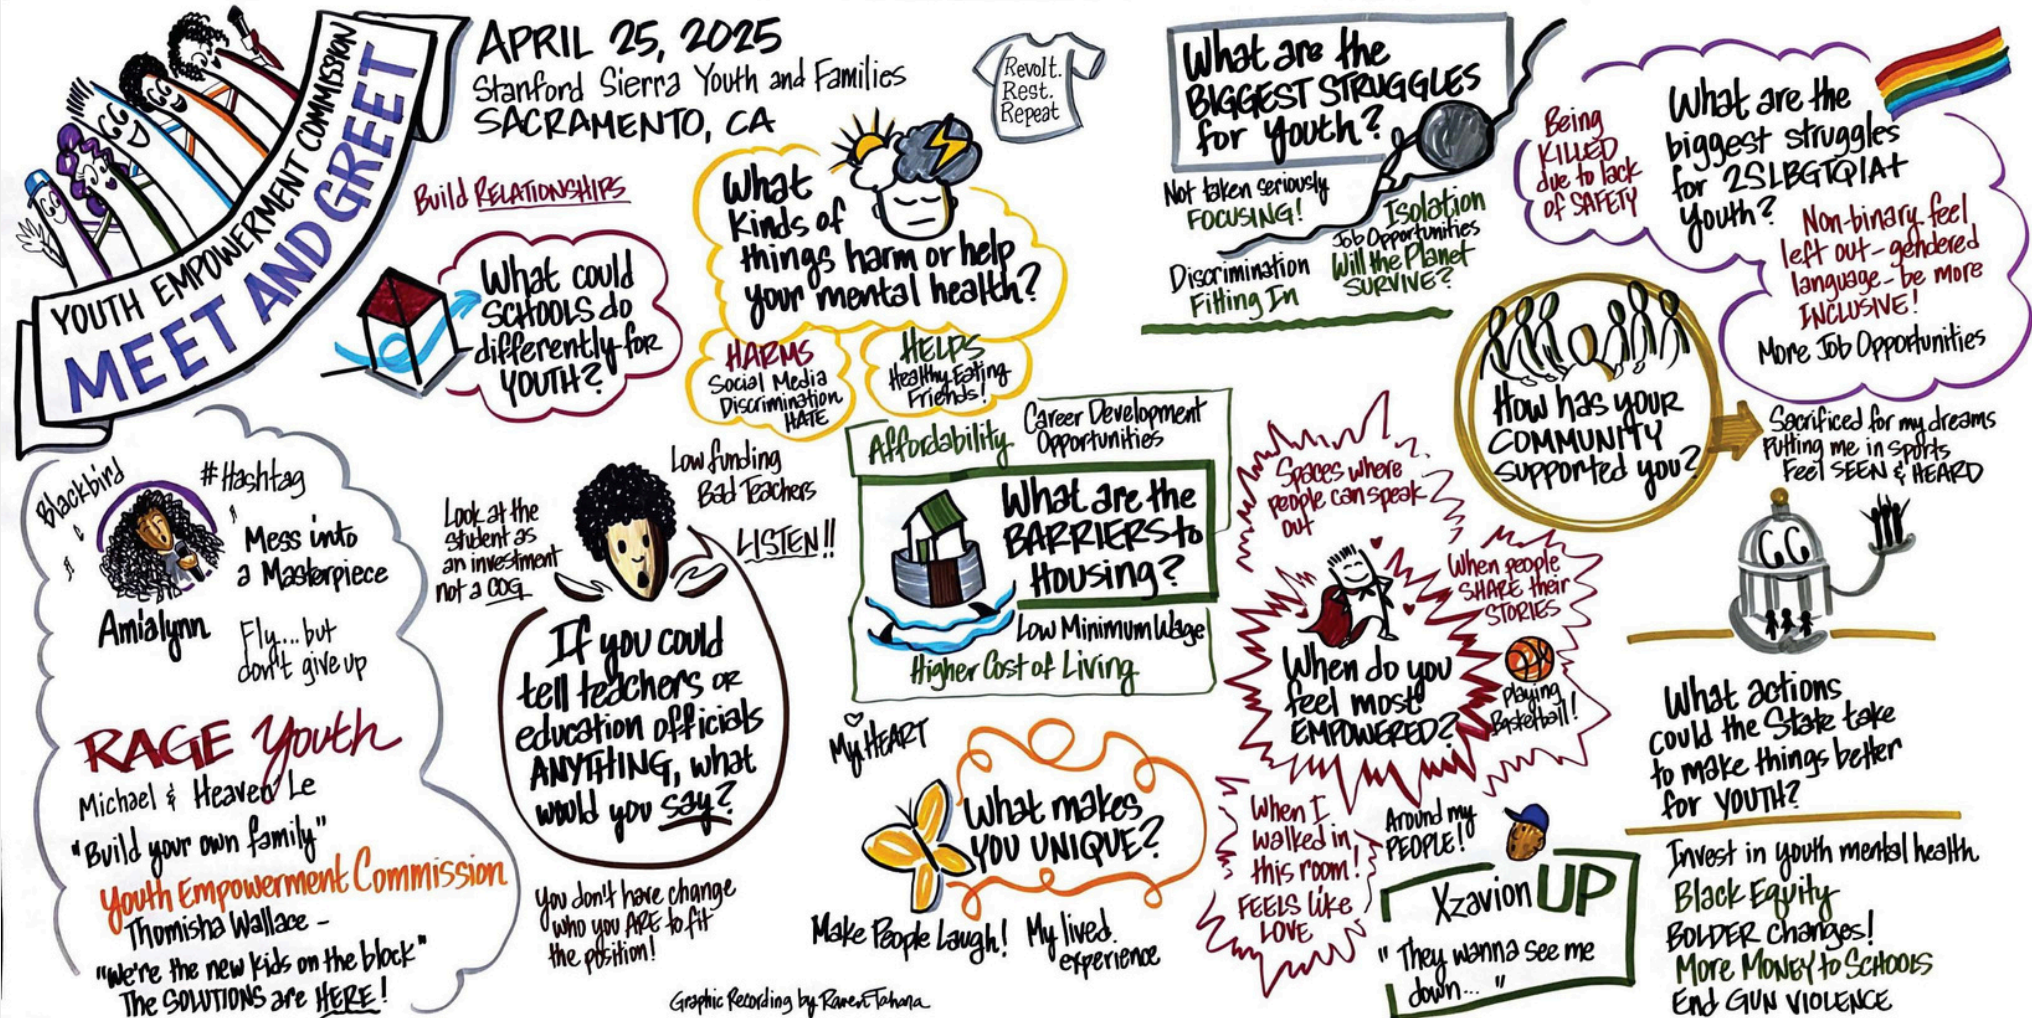 YOUTH EMPOWERMENT COMMISSION
MEET AND GREET
APRIL 25, 2025
Stanford Sierra Youth and Families
SACRAMENTO, CA
Revolt.
Rest.
Repeat
Build RELATIONSHIPS
What could
SCHOOLS do
differently for
YOUTH?
What
kinds of
things harm or help
your mental health?
HARMS
Social Media
Discrimination
HATE
HELPS
Healthy Eating
Friends!
What are the
BIGGEST STRUGGLES
for youth?
Not taken seriously
FOCUSING!
Isolation
Job Opportunities
Will the Planet
SURVIVE?
Discrimination
Fitting In
Being
KILLED
due to lack
of SAFETY
What are the
biggest struggles
for 2SLBGTQIA+
youth?
Non-binary feel
left out - gendered
language - be more
INCLUSIVE!
More Job Opportunities
How has your
COMMUNITY
supported you?
Sacrificed for my dreams
Putting me in sports
Feel SEEN & HEARD
Blackbird
#Hashtag
Mess into
a Masterpiece
Amialynn
Fly... but
don't give up
RAGE Youth
Michael & Heaven Le
"Build your own family"
Youth Empowerment Commission
Thomisha Wallace -
"We're the new kids on the block"
The SOLUTIONS are HERE!
Look at the
student as
an investment
not a COG
Low funding
Bad Teachers
LISTEN!!
If you could
tell teachers OR
education officials
ANYTHING, what
would you say?
You don't have change
who you ARE to fit
the position!
Affordability
Career Development
Opportunities
What are the
BARRIERS to
Housing?
Low Minimum Wage
Higher Cost of Living
My HEART
What makes
YOU UNIQUE?
Make People Laugh!
My lived
experience
Graphic Recording by Raven Tahana
Spaces where
people can speak
out
When people
SHARE their
STORIES
When do you
feel most
EMPOWERED?
Playing
Basketball!
When I
walked in
this room!
FEELS like
LOVE
Around my
PEOPLE!
Xzavion UP
"They wanna see me
down... "
What actions
could the State take
to make things better
for YOUTH?
Invest in youth mental health
Black Equity
BOLDER changes!
More MONEY to SCHOOLS
End GUN VIOLENCE